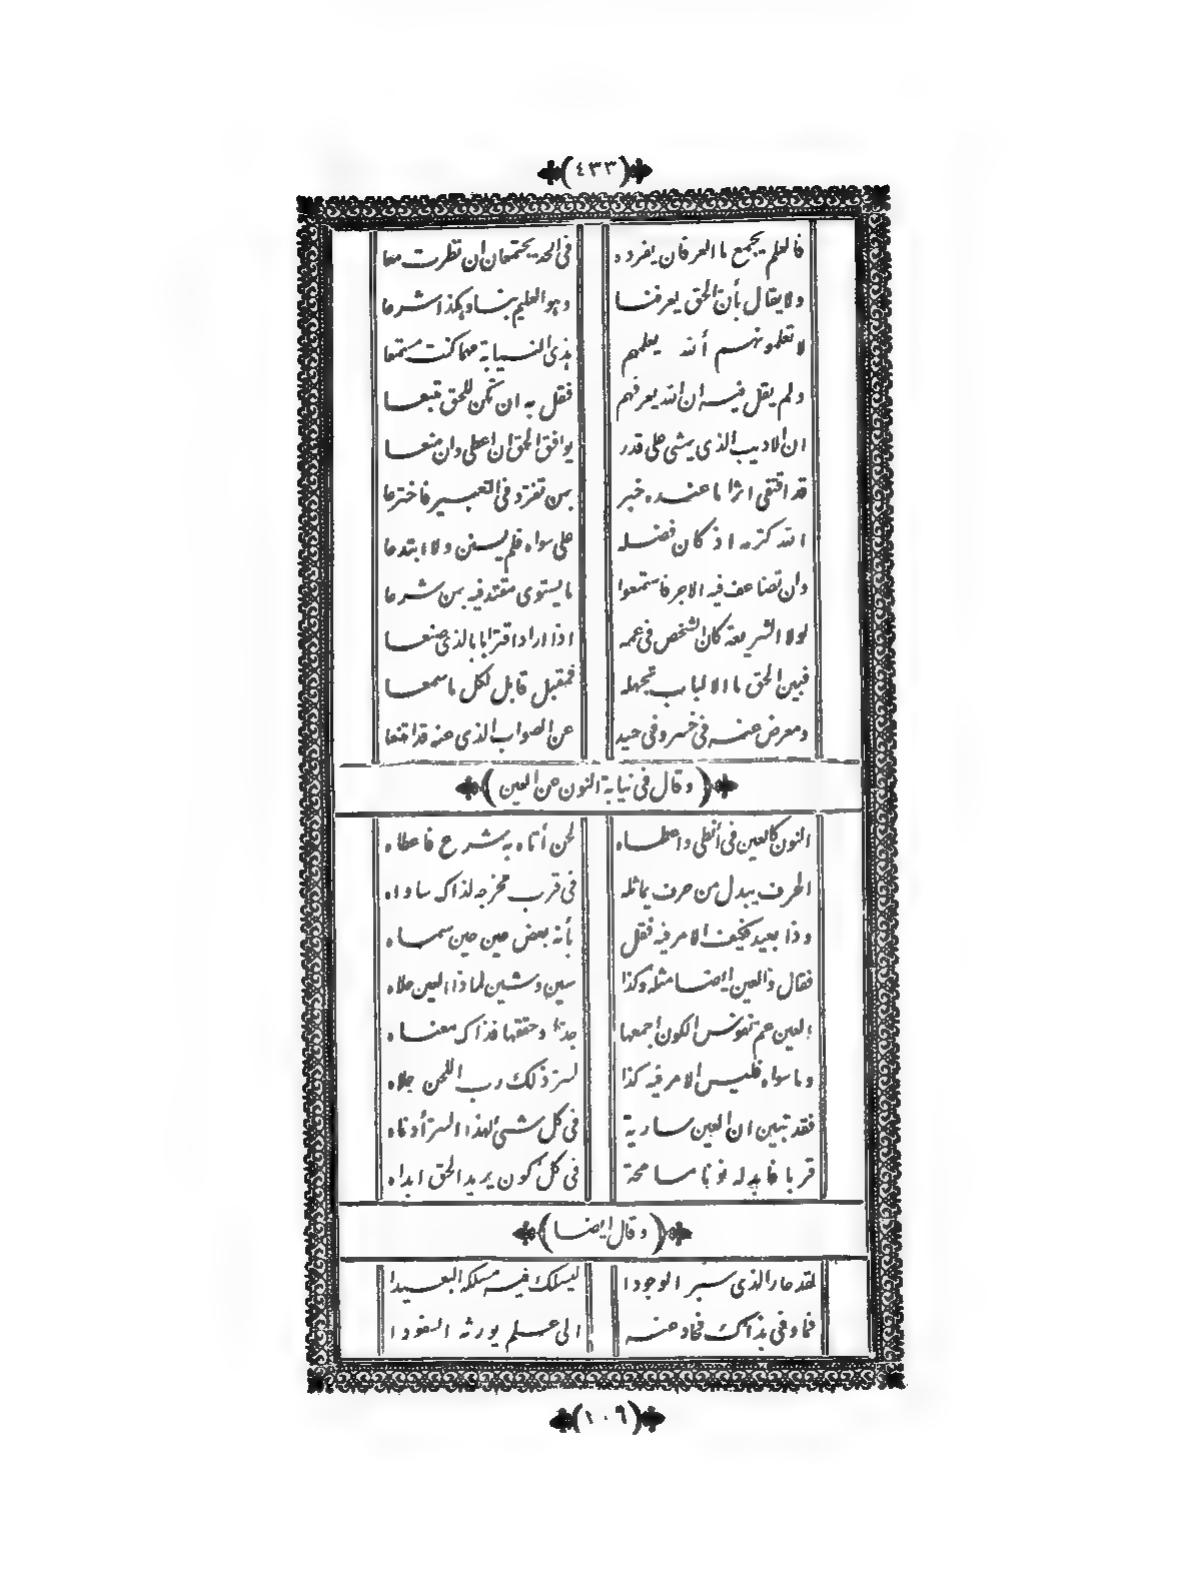 (٤٣٣)
فالعلم يجمع ما العرفان يفرده في الحد يجتمعان ان نظرت معا
ولا يقال بأن الحق يعرفنا وهو العليم بنا وهكذا شرعا
لا تعلمونهم ألله يعلمهم بذي النيابة مهما كنت مستمعا
ولم يقل فيه ان الله يعرفهم فقل به ان تكن للحق تبعا
ان الاديب الذي يمشي على قدر يوافق الحق ان اعطى وان منعا
قد اقتفى اثرا ما عنده خبر بمن تفرّد في التعبير فاخترعا
الله كرّمه اذ كان فضله على سواه فلم يسنن ولا ابتدعا
وان تضاعف فيه الاجر فاستمعوا ما يستوي مقتد فيه بمن شرعا
لولا الشريعة كان الشخص في عمه اذا اراد اقترابا بالذي صنعا
فبين الحق ما الالباب تجهله فمقبل قابل لكل ما سمعا
ومعرض عنه في خسر وفي حيد عن الصواب الذي عنه قد امتنعا
(وقال في نيابة النون عن العين)
النون كالعين في أنطى واعطاه لحن أتاه به شرع فاعطاه
الحرف يبدل من حرف يماثله في قرب مخرجه لذاك ساواه
وذا بعيد فكيف الامر فيه فقل بأنه بعض عين حين سماه
فقال ذا العين ايضا مثله وكذا سين وشين لماذا العين حلاه
العين عم نفوس الكون اجمعها جدّا وحققها فذاك معناه
وما سواه فليس الامر فيه كذا لسرّ ذلك رب اللحن جلاه
فقد تبين ان العين سارية في كل شيء لهذا السرّ أدناه
قربا فابدله نونا مسامحة في كل كون يريد الحق ابداه
(وقال ايضا)
لقد حار الذي سبر الوجودا ليسلك فيه مسلكه البعيدا
فما وفى بذاك فماد عنه الى علم يورثه السعودا
(١٠٦)